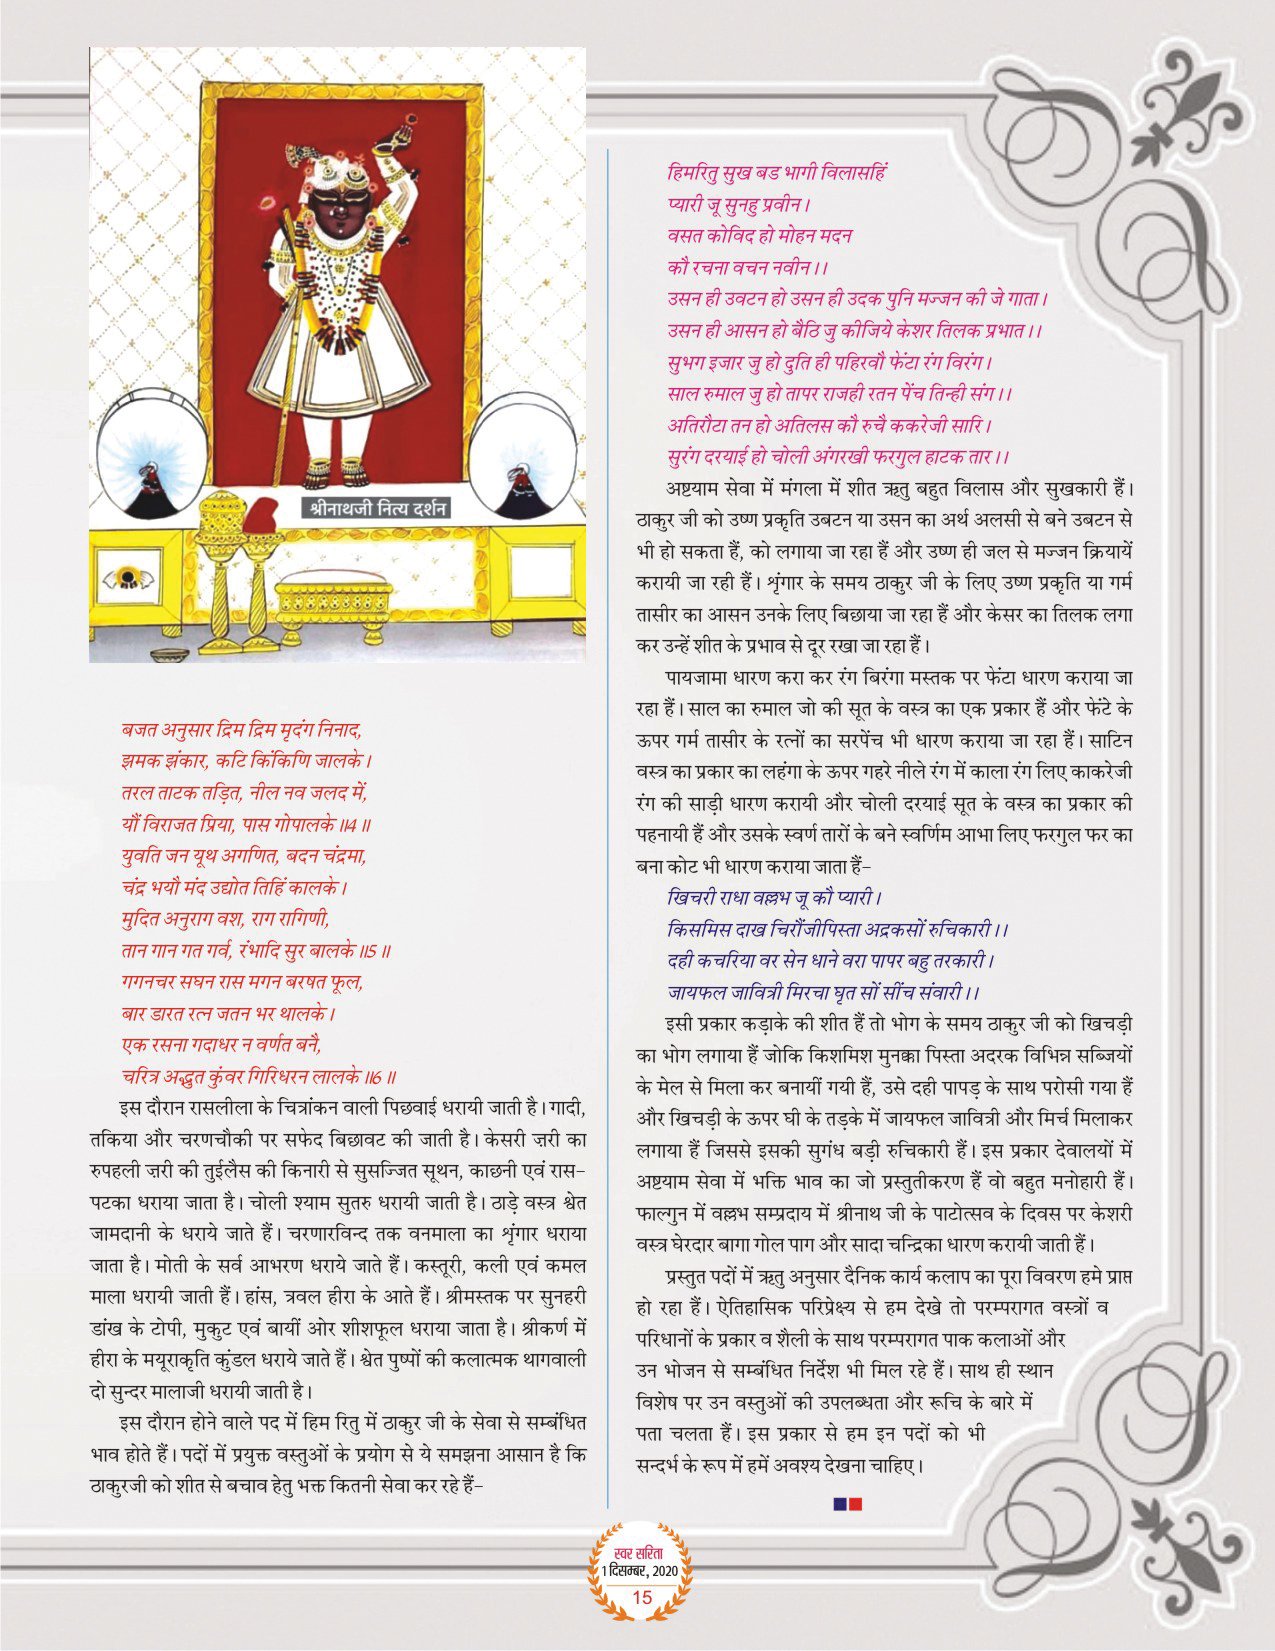 श्रीनाथजी नित्य दर्शन
बजत अनुसार द्रिम द्रिम मृदंग निनाद,
झमक झंकार, कटि किंकिणि जालके।
तरल ताटक तड़ित, नील नव जलद में,
यौं विराजत प्रिया, पास गोपालके॥4॥
युवति जन यूथ अगणित, बदन चंद्रमा,
चंद्र भयौ मंद उद्योत तिहिं कालके।
मुदित अनुराग वश, राग रागिणी,
तान गान गत गर्व, रंभादि सुर बालके॥5॥
गगनचर सघन रास मगन बरषत फूल,
बार डारत रत्न जतन भर थालके।
एक रसना गदाधर न वर्णत बनै,
चरित्र अद्भुत कुंवर गिरिधरन लालके॥6॥
इस दौरान रासलीला के चित्रांकन वाली पिछवाई धरायी जाती है। गादी,
तकिया और चरणचौकी पर सफेद बिछावट की जाती है। केसरी ज़री का
रुपहली ज़री की तुईलैस की किनारी से सुसज्जित सूथन, काछनी एवं रास-
पटका धराया जाता है। चोली श्याम सुतरु धरायी जाती है। ठाड़े वस्त्र श्वेत
जामदानी के धराये जाते हैं। चरणारविन्द तक वनमाला का शृंगार धराया
जाता है। मोती के सर्व आभरण धराये जाते हैं। कस्तूरी, कली एवं कमल
माला धरायी जाती हैं। हांस, त्रवल हीरा के आते हैं। श्रीमस्तक पर सुनहरी
डांख के टोपी, मुकुट एवं बायीं ओर शीशफूल धराया जाता है। श्रीकर्ण में
हीरा के मयूराकृति कुंडल धराये जाते हैं। श्वेत पुष्पों की कलात्मक थागवाली
दो सुन्दर मालाजी धरायी जाती है।
इस दौरान होने वाले पद में हिम रितु में ठाकुर जी के सेवा से सम्बंधित
भाव होते हैं। पदों में प्रयुक्त वस्तुओं के प्रयोग से ये समझना आसान है कि
ठाकुरजी को शीत से बचाव हेतु भक्त कितनी सेवा कर रहे हैं-
हिमरितु सुख बड भागी विलासहिं
प्यारी जू सुनहु प्रवीन।
वसत कोविद हो मोहन मदन
कौ रचना वचन नवीन।।
उसन ही उवटन हो उसन ही उदक पुनि मज्जन की जे गाता।
उसन ही आसन हो बैठि जु कीजिये केशर तिलक प्रभात।।
सुभग इजार जु हो दुति ही पहिरवौ फेंटा रंग विरंग।
साल रुमाल जु हो तापर राजही रतन पेंच तिन्ही संग।।
अतिरौटा तन हो अतिलस कौ रुचै ककरेजी सारि।
सुरंग दरयाई हो चोली अंगरखी फरगुल हाटक तार।।
अष्टयाम सेवा में मंगला में शीत ऋतु बहुत विलास और सुखकारी हैं।
ठाकुर जी को उष्ण प्रकृति उबटन या उसन का अर्थ अलसी से बने उबटन से
भी हो सकता हैं, को लगाया जा रहा हैं और उष्ण ही जल से मज्जन क्रियायें
करायी जा रही हैं। शृंगार के समय ठाकुर जी के लिए उष्ण प्रकृति या गर्म
तासीर का आसन उनके लिए बिछाया जा रहा हैं और केसर का तिलक लगा
कर उन्हें शीत के प्रभाव से दूर रखा जा रहा हैं।
पायजामा धारण करा कर रंग बिरंगा मस्तक पर फेंटा धारण कराया जा
रहा हैं। साल का रुमाल जो की सूत के वस्त्र का एक प्रकार हैं और फेंटे के
ऊपर गर्म तासीर के रत्नों का सरपेंच भी धारण कराया जा रहा हैं। साटिन
वस्त्र का प्रकार का लहंगा के ऊपर गहरे नीले रंग में काला रंग लिए काकरेजी
रंग की साड़ी धारण करायी और चोली दरयाई सूत के वस्त्र का प्रकार की
पहनायी हैं और उसके स्वर्ण तारों के बने स्वर्णिम आभा लिए फरगुल फर का
बना कोट भी धारण कराया जाता हैं-
खिचरी राधा वल्लभ जू कौ प्यारी।
किसमिस दाख चिरौंजीपिस्ता अद्रकसों रुचिकारी।।
दही कचरिया वर सेन धाने वरा पापर बहु तरकारी।
जायफल जावित्री मिरचा घृत सों सींच संवारी।।
इसी प्रकार कड़ाके की शीत हैं तो भोग के समय ठाकुर जी को खिचड़ी
का भोग लगाया हैं जोकि किशमिश मुनक्का पिस्ता अदरक विभिन्न सब्जियों
के मेल से मिला कर बनायीं गयी हैं, उसे दही पापड़ के साथ परोसी गया हैं
और खिचड़ी के ऊपर घी के तड़के में जायफल जावित्री और मिर्च मिलाकर
लगाया हैं जिससे इसकी सुगंध बड़ी रुचिकारी हैं। इस प्रकार देवालयों में
अष्टयाम सेवा में भक्ति भाव का जो प्रस्तुतीकरण हैं वो बहुत मनोहारी हैं।
फाल्गुन में वल्लभ सम्प्रदाय में श्रीनाथ जी के पाटोत्सव के दिवस पर केशरी
वस्त्र घेरदार बागा गोल पाग और सादा चन्द्रिका धारण करायी जाती हैं।
प्रस्तुत पदों में ऋतु अनुसार दैनिक कार्य कलाप का पूरा विवरण हमे प्राप्त
हो रहा हैं। ऐतिहासिक परिप्रेक्ष्य से हम देखे तो परम्परागत वस्त्रों व
परिधानों के प्रकार व शैली के साथ परम्परागत पाक कलाओं और
उन भोजन से सम्बंधित निर्देश भी मिल रहे हैं। साथ ही स्थान
विशेष पर उन वस्तुओं की उपलब्धता और रूचि के बारे में
पता चलता हैं। इस प्रकार से हम इन पदों को भी
सन्दर्भ के रूप में हमें अवश्य देखना चाहिए।
स्वर सरिता
1 दिसम्बर, 2020
15